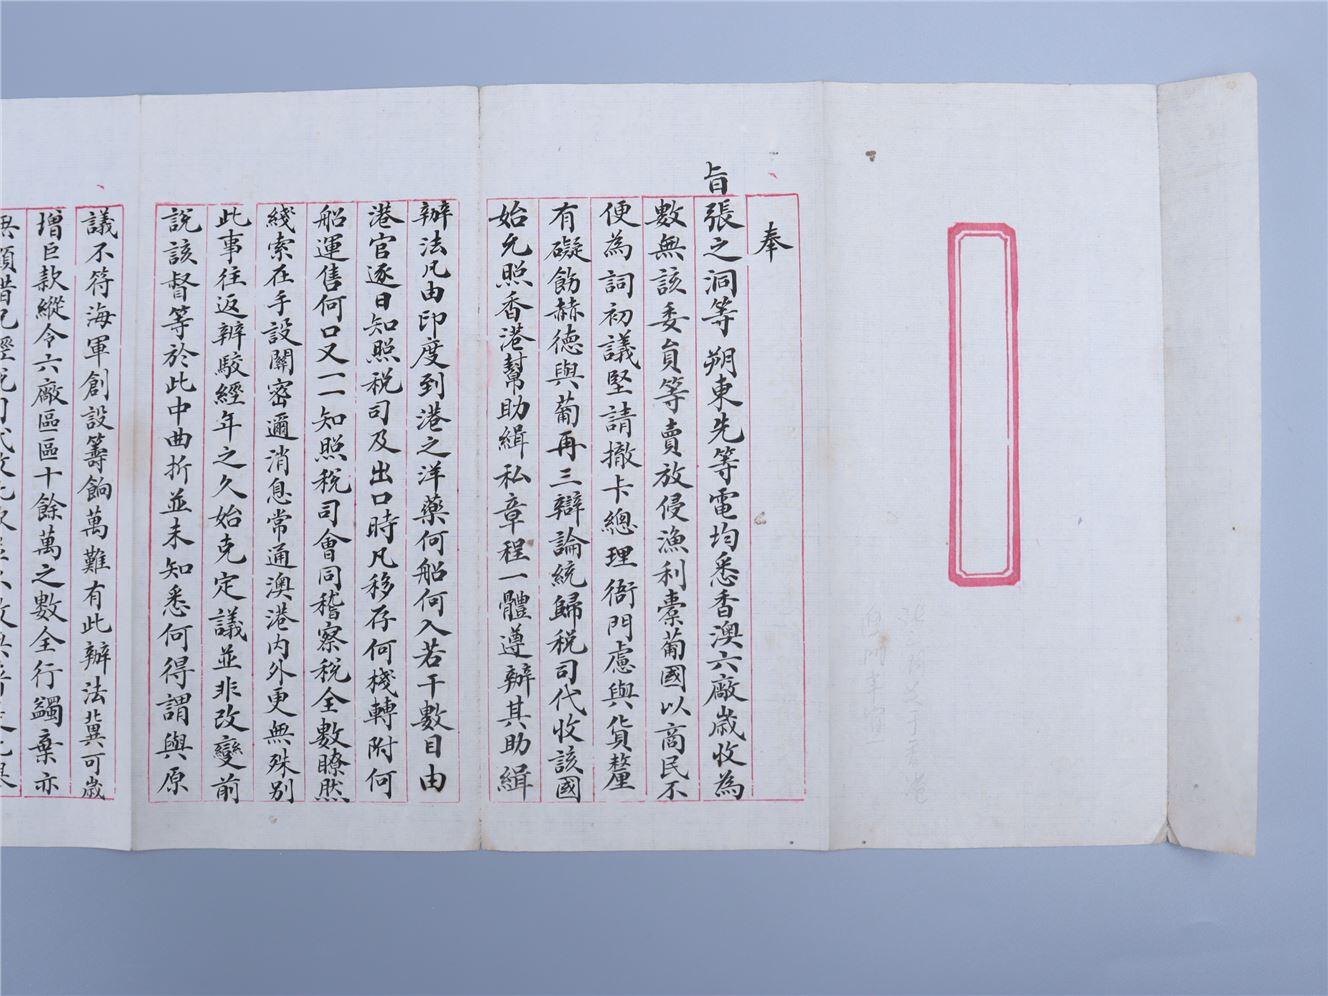 奉
旨張之洞等朔東先等電均悉香澳六廠歲收為
數無該委員等賣放侵漁利橐葡國以商民不
便為詞初議堅請撤卡總理衙門慮與貨釐
有礙飭赫德與葡再三辯論統歸稅司代收該國
始允照香港幫助緝私章程一體遵辦其助緝
辦法凡由印度到港之洋藥何船何入若干數目由
港官逐日知照稅司及出口時凡移存何棧轉附何
船運售何口又一一知照稅司會同稽察稅全數瞭然
綫索在手設關密邇消息常通澳港內外更無殊別
此事往返辨駮經年之久始克定議並非改變前
說該督等於此中曲折並未知悉何得謂與原
議不符海軍創設籌餉萬難有此辦法冀可歲
增巨款縱令六廠區區十餘萬之數全行蠲棄亦